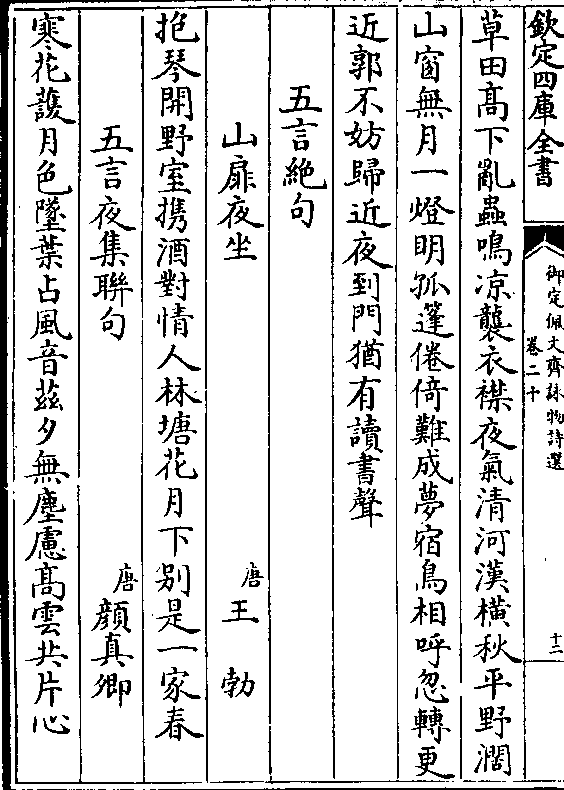 欽定四庫全書
御定佩文齋詠物詩選
卷二十
十二
草田髙下亂蟲鳴凉襲衣襟夜氣清河漢橫秋平野濶
山窗無月一燈明孤篷倦倚難成夢宿鳥相呼忽轉更
近郭不妨歸近夜到門猶有讀書聲
五言絶句
山扉夜坐
唐王勃
抱琴開野室携酒對情人林塘花月下别是一家春
五言夜集聯句
唐顔真卿
寒花護月色墜葉占風音兹夕無塵慮髙雲共片心